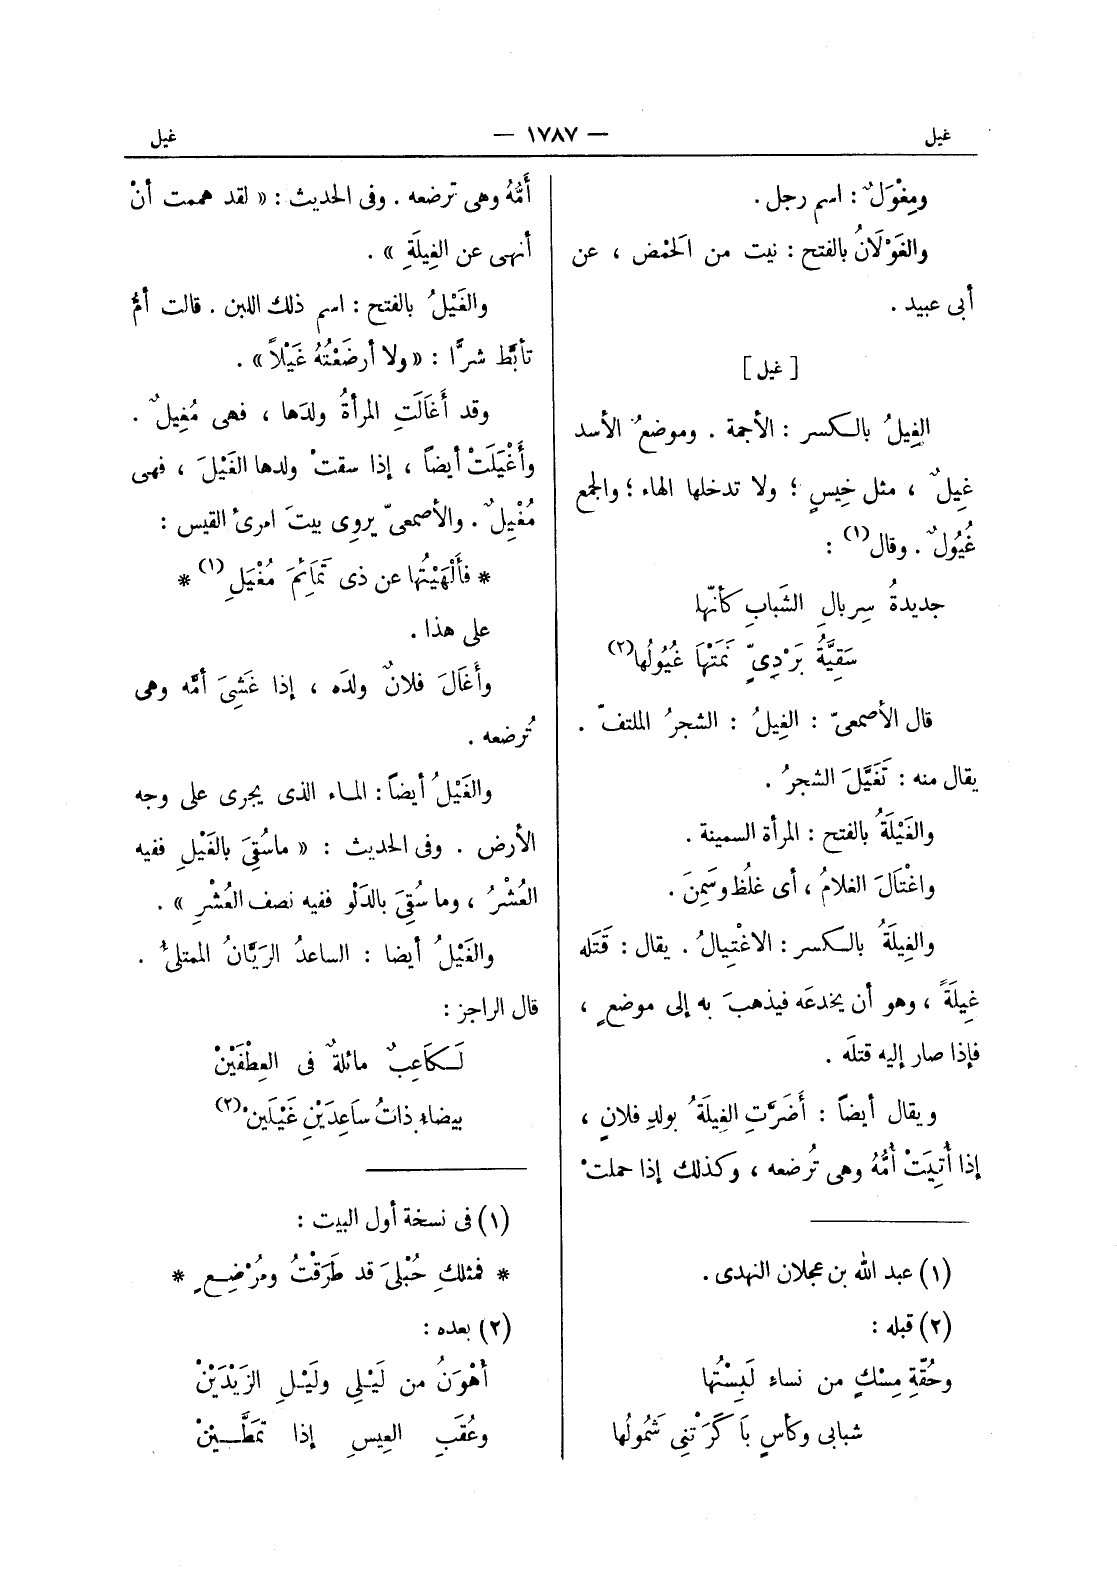 غيل — ١٧٨٧ — غيل
ومِغْوَلٌ : اسم رجل .
والغَوْلَانُ بالفتح : نبت من الَحْمض ، عن
أبى عبيد .
[ غيل ]
الغِيلُ بالكسر : الأجمة . وموضعُ الأسد
غِيلٌ ، مثل خِيسٍ ؛ ولا تدخلها الهاء ؛ والجمع
غُيُولٌ . وقال (١) :
جديدةُ سِربالِ الشَبابِ كأنّها
سَقِيَّةُ بَرْدِىٍّ نَمَتْهَا غُيُولُها (٢)
قال الأصمعىّ : الغِيلُ : الشجرُ الملتفّ .
يقال منه : تَغَيَّلَ الشجرُ .
والغَيْلَةُ بالفتح : المرأة السمينة .
واغْتَالَ الغلامُ ، أى غلُظ وسَمِنَ .
والغِيلَةُ بالكسر : الاغْتِيالُ . يقال : قَتَله
غِيلَةً ، وهو أن يخدعَه فيذهبَ به إلى موضعٍ ،
فإذا صار إليه قتلَه .
ويقال أيضاً : أَضَرَّتِ الغِيلَةُ بولدِ فلانٍ ،
إذا أُتِيَتْ أُمُّهُ وهى تُرضعه ، وكذلك إذا حملتْ
(١) عبد الله بن عجلان النهدى .
(٢) قبله :
وحُقّةِ مِسْكٍ من نساء لَبِسْتُها
شبابى وكأسٍ بَاكَرَتْنِى شَمُولُها
أُمُّهُ وهى ترضعه . وفى الحديث : « لقد هممت أنْ
أنهى عن الغِيلَةِ » .
والغَيْلُ بالفتح : اسم ذلك اللبن . قالت أمُّ
تأبَّط شرًّا : « ولا أرضَعْتُهُ غَيْلاً » .
وقد أَغَالَتِ المرأةُ ولدَها ، فهى مُغِيلٌ .
وأَغْيَلَتْ أيضاً ، إذا سقتْ ولدها الغَيْلَ ، فهى
مُغْيِلٌ . والأصمعىّ يروِى بيتَ امرئ القيس :
* فأَلْهَيْتُها عن ذى تَمَائِمَ مُغْيَلِ (١) *
على هذا .
وأَغَالَ فلانٌ ولدَه ، إذا غَشِىَ أمَّه وهى
تُرضعه .
والغَيْلُ أيضاً : الماء الذى يجرى على وجه
الأرض . وفى الحديث : « ماسُقِىَ بالغَيْلِ ففيه
العُشْرُ ، وما سُقِىَ بالدَلْو ففيه نصف العُشْرِ » .
والغَيْلُ أيضا : الساعدُ الرَيَّانُ الممتلئُ .
قال الراجز :
لَكَاعِبٌ مائلةٌ فى العِطْفَيْنْ
بيضاء ذاتُ ساَعِدَيْنِ غَيْلَينْ (٢)
(١) فى نسخة أول البيت :
* فمثلكِ حُبْلىَ قد طَرَقْتُ ومُرْضِعٍ *
(٢) بعده :
أَهْوَنُ من لَيْلِى ولَيْلِ الزَيْدَيْنْ
وعُقَبِ العِيسِ إذا تمَطَّيْنْ